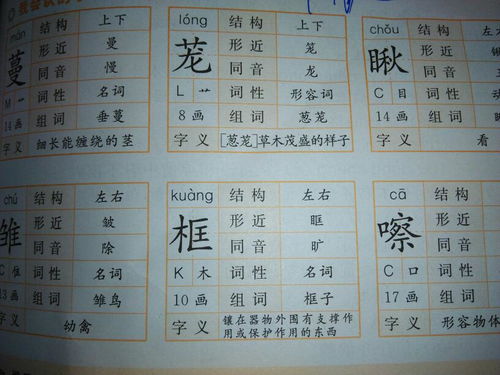 我会认的字
màn 结构 上下
蔓 形近 曼
同音 慢
M 艹 词性 名词
14画 组词 垂蔓
字义 细长能缠绕的茎
lóng 结构 上下
茏 形近 笼
同音 龙
L 艹 词性 形容词
8画 组词 葱茏
字义 [葱茏]草木茂盛的样子
chǒu 结构 左
瞅 形近
同音
C 目 词性
14画 组词
字义 看
chú 结构 左右
雏 形近 皱
同音 除
C 隹 词性 名词
13画 组词 雏鸟
字义 幼禽
kuàng 结构 左右
框 形近 眶
同音 旷
K 木 词性 名词
10画 组词 框子
字义 镶在器物外围有支撑作
用或保护作用的东西
cā 结构
嚓 形近
同音
C 口 词性
17画 组词
字义 形容物体